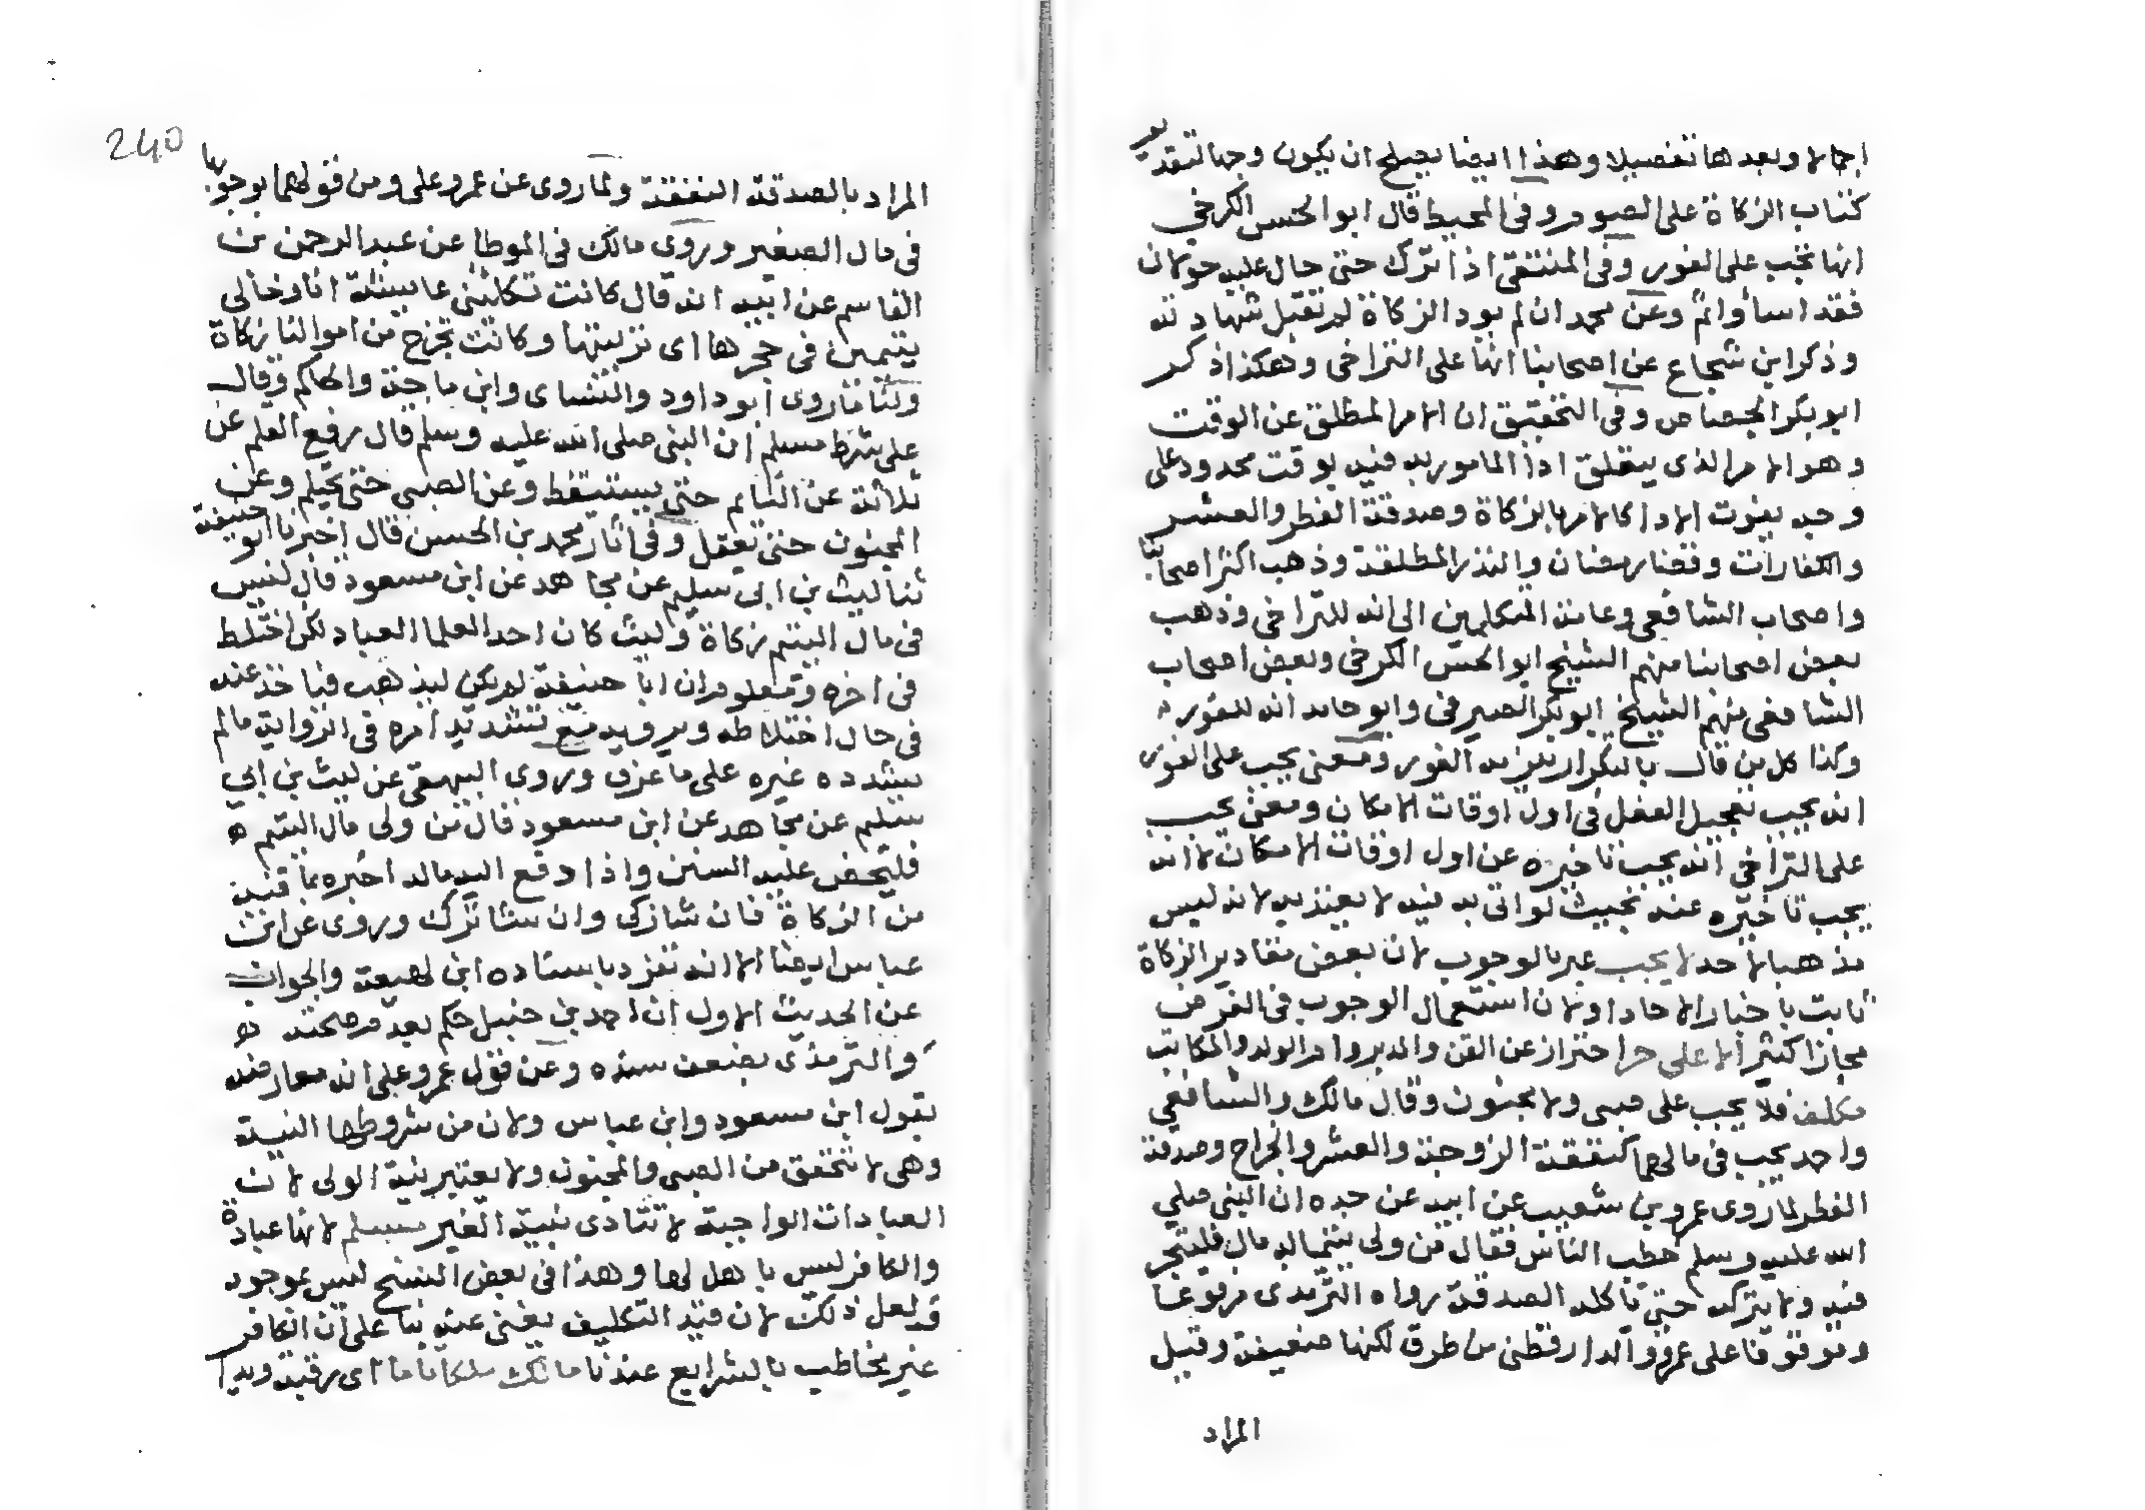 اجمالا وبعدها تفصيلا وهذا ايضا يصلح ان يكون وجها لتقدير
كتاب الزكاة على الصوم وفى المحيط قال ابو الحسن الكرخي
انها تجب على الفور وفى المنتقى اذا ترك حتى حال عليه حولان
فقد اساء واثم وعن محمد ان لم يود الزكاة لم تقبل شهادته
وذكر ابن شجاع عن اصحابنا انها على التراخى وهكذا ذكر
ابو بكر الجصاص وفى التحقيق ان الامر المطلق عن الوقت
وهو الامر الذى يتعلق اداء المامور به فيه بوقت محدود على
وجه يفوت الاداء كالامر بالزكاة وصدقة الفطر والعشر
والكفارات وقضاء رمضان والنذر المطلقة وذهب اكثر اصحابنا
واصحاب الشافعى وعامة المتكلمين الى انه للتراخى وذهب
بعض اصحابنا منهم الشيخ ابو الحسن الكرخى وبعض اصحاب
الشافعى منهم الشيخ ابو بكر الصيرفى وابو حامد انه للفور
وكذا كل من قال بالتكرار يلزمه الفور ومعنى يجب على الفور
انه يجب تعجيل الفعل فى اول اوقات الامكان ومعنى يجب
على التراخى انه يجب تاخيره عن اول اوقات الامكان لا انه
يجب تاخيره عنه بحيث لو اتى به فيه لا يعتد به لانه ليس
مذهبا لاحد لا يجب عبر بالوجوب لان بعض مقادير الزكاة
ثابت باخبار الاحاد او لان استعمال الوجوب فى الفرض
مجازا كثير الا على حر احتراز عن القن والمدبر وام الولد والمكاتب
مكلف فلا يجب على صبى ولا مجنون وقال مالك والشافعي
واحمد يجب فى مالهما كنفقة الزوجة والعشر والخراج وصدقة
الفطر لما روى عمرو بن شعيب عن ابيه عن جده ان النبى صلي
الله عليه وسلم خطب الناس فقال من ولى يتيما له مال فليتجر
فيه ولا يتركه حتى تاكله الصدقة رواه الترمذى مرفوعا
وموقوفا على عمر والدارقطنى من طرق لكنها ضعيفة وقيل
المراد
240
المراد بالصدقة النفقة ولما روى عن عمر وعلى ومن قولهما بوجوبها
فى مال الصغير وروى مالك فى الموطا عن عبد الرحمن بن
القاسم عن ابيه انه قال كانت تكلئنى عايشة انا وخالى
يتيمين فى حجرها اى تربيتها وكانت تخرج من اموالنا زكاة
ولنا ما روى ابو داود والنسائ وابن ماجة والحاكم وقال
على شرط مسلم ان النبى صلى الله عليه وسلم قال رفع القلم عن
ثلاثة عن النايم حتى يستيقظ وعن الصبى حتى يحتلم وعن
المجنون حتى يعقل وفى اثار محمد بن الحسن قال اخبرنا ابو حنيفة
ثنا ليث بن ابى سليم عن مجاهد عن ابن مسعود قال ليس
فى مال اليتيم زكاة وليث كان احد العلما العباد لكن اختلط
فى اخره ومعلوم ان ابا حنيفة لم يكن ليذهب فياخذ عنه
فى حال اختلاطه ويرويه مع تشديد امره فى الرواية مالم
يشدده غيره على ما عرف وروى البيهقى عن ليث بن ابي
سليم عن مجاهد عن ابن مسعود قال من ولى مال اليتيم ه
فليحص عليه السنين واذا دفع اليه ماله اخبره بما فيه
من الزكاة فان شا زكى وان شا ترك وروى عن ابن
عباس ايضا الا انه تفرد باسناده ابن لهيعة والجواب
عن الحديث الاول ان احمد بن حنبل حكم بعدم صحته ه
والترمذى بضعف سنده وعن قول عمر وعلى انه معارضه
بقول ابن مسعود وابن عباس ولان من شروطها النية
وهى لا تتحقق من الصبى والمجنون ولا يعتبر بنية الولى لان
العبادات الواجبة لا تتادى بنية الغير مسلم لانها عبادة
والكافر ليس باهل لها وهذا فى بعض النسخ ليس بموجود
ولعل ذلك لان قيد التكليف يغنى عنه بنا على ان الكافر
غير مخاطب بالشرايع عندنا مالك ملكا تاما اى رقبة ويدا